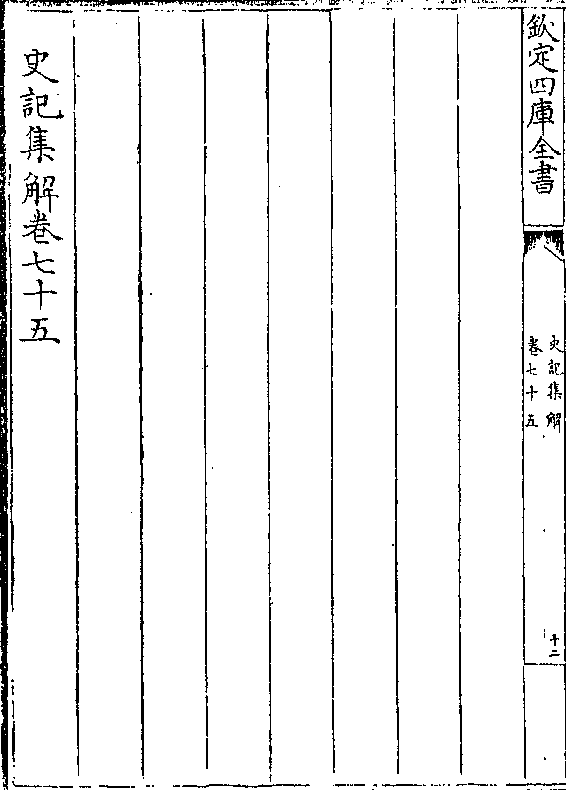 欽定四庫全書
史記集解
卷七十五
十二
史記集解卷七十五